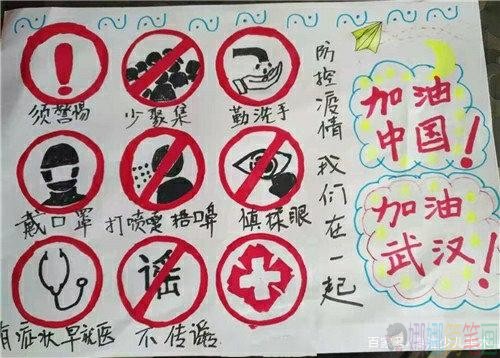 须警惕
少聚集
勤洗手
戴口罩
打喷嚏捂嘴
慎揉眼
谣
有症状早就医
不传谣
防控疫情 我们在一起
加油
中国!
加油
武汉!